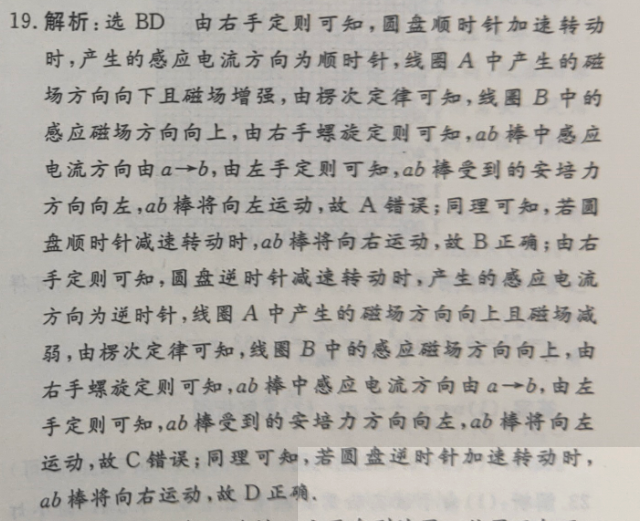 19. 解析:选 BD 由右手定则可知,圆盘顺时针加速转动
时,产生的感应电流方向为顺时针,线圈 A 中产生的磁
场方向向下且磁场增强,由楞次定律可知,线圈 B 中的
感应磁场方向向上,由右手螺旋定则可知,ab 棒中感应
电流方向由 a→b,由左手定则可知,ab 棒受到的安培力
方向向左,ab 棒将向左运动,故 A 错误;同理可知,若圆
盘顺时针减速转动时,ab 棒将向右运动,故 B 正确;由右
手定则可知,圆盘逆时针减速转动时,产生的感应电流
方向为逆时针,线圈 A 中产生的磁场方向向上且磁场减
弱,由楞次定律可知,线圈 B 中的感应磁场方向向上,由
右手螺旋定则可知,ab 棒中感应电流方向由 a→b,由左
手定则可知,ab 棒受到的安培力方向向左,ab 棒将向左
运动,故 C 错误;同理可知,若圆盘逆时针加速转动时,
ab 棒将向右运动,故 D 正确.